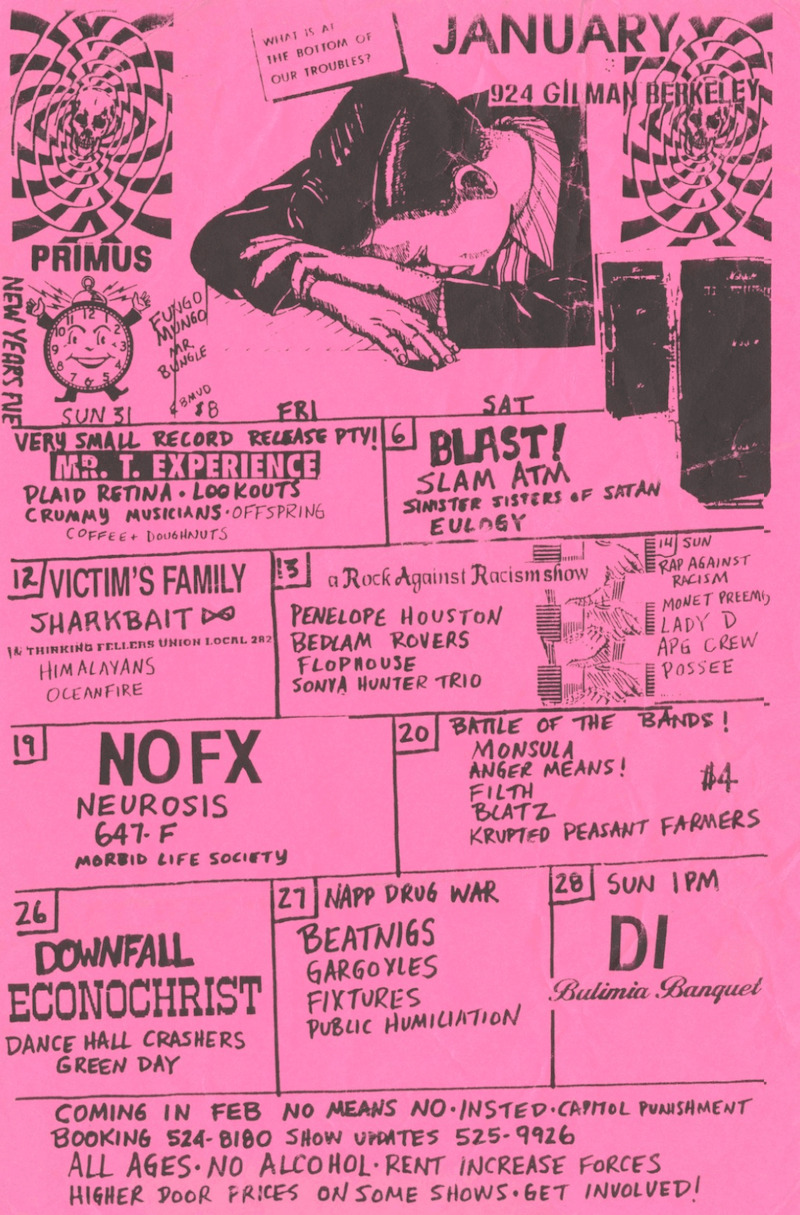 WHAT IS AT
THE BOTTOM OF
OUR TROUBLES?
JANUARY
924 GILMAN BERKELEY
PRIMUS
NEW YEARS EVE
FUNGO
MUNGO
MR.
BUNGLE
& BMUD
$8
SUN 31
FRI
SAT
VERY SMALL RECORD RELEASE PTY!
MR. T. EXPERIENCE
PLAID RETINA · LOOKOUTS
CRUMMY MUSICIANS · OFFSPRING
COFFEE + DOUGHNUTS
6
BLAST!
SLAM ATM
SINISTER SISTERS OF SATAN
EULOGY
12
VICTIM'S FAMILY
SHARKBAIT
THINKING FELLERS UNION LOCAL 282
HIMALAYANS
OCEANFIRE
13
a Rock Against Racism show
PENELOPE HOUSTON
BEDLAM ROVERS
FLOPHOUSE
SONYA HUNTER TRIO
14 SUN
RAP AGAINST
RACISM
MONET PREEMI,
LADY D
APG CREW
POSSEE
19
NOFX
NEUROSIS
647-F
MORBID LIFE SOCIETY
20
BATTLE OF THE BANDS!
MONSULA
ANGER MEANS!
FILTH
BLATZ
KRUPTED PEASANT FARMERS
$4
26
DOWNFALL
ECONOCHRIST
DANCE HALL CRASHERS
GREEN DAY
27
NAPP DRUG WAR
BEATNIGS
GARGOYLES
FIXTURES
PUBLIC HUMILIATION
28 SUN 1PM
DI
Bulimia Banquet
COMING IN FEB NO MEANS NO · INSTED · CAPITOL PUNISHMENT
BOOKING 524-8180 SHOW UPDATES 525-9926
ALL AGES · NO ALCOHOL · RENT INCREASE FORCES
HIGHER DOOR PRICES ON SOME SHOWS · GET INVOLVED!